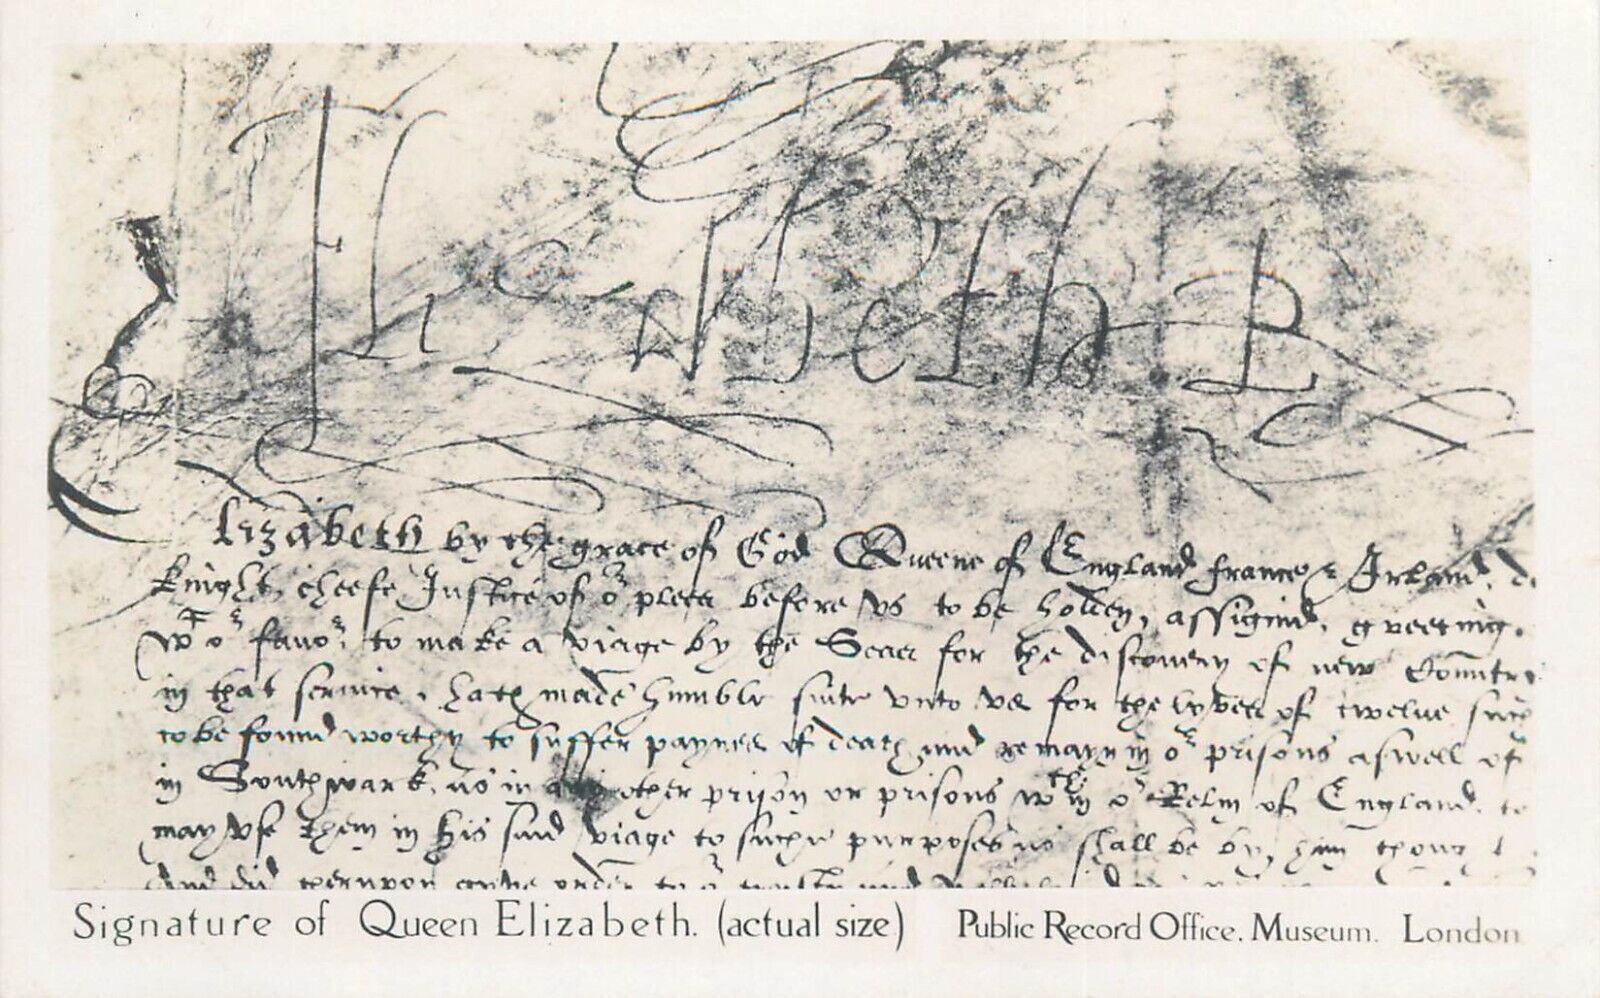 Elizabeth R
Elizabeth by the grace of God Queene of England france & Irland, de
knight, cheefe Justice of oʳ plees before vs to be holden, assignid, greeting.
wᵗ oʳ favoʳ, to make a viage by the Seaes for the discovery of new Countre
in that service, hath made humble sute unto vs for the lyves of twelve such
to be found worthy to suffer paynes of death and remayn in oʳ prisons aswell of
in Southwark, as in any other prison or prisons wᵗʰin oʳ Relm of England, to
may vse them in his said viage to suche purposes as shall be by him thoug
And did therupon gyve order to oʳ trusty and
Signature of Queen Elizabeth. (actual size) Public Record Office. Museum. London